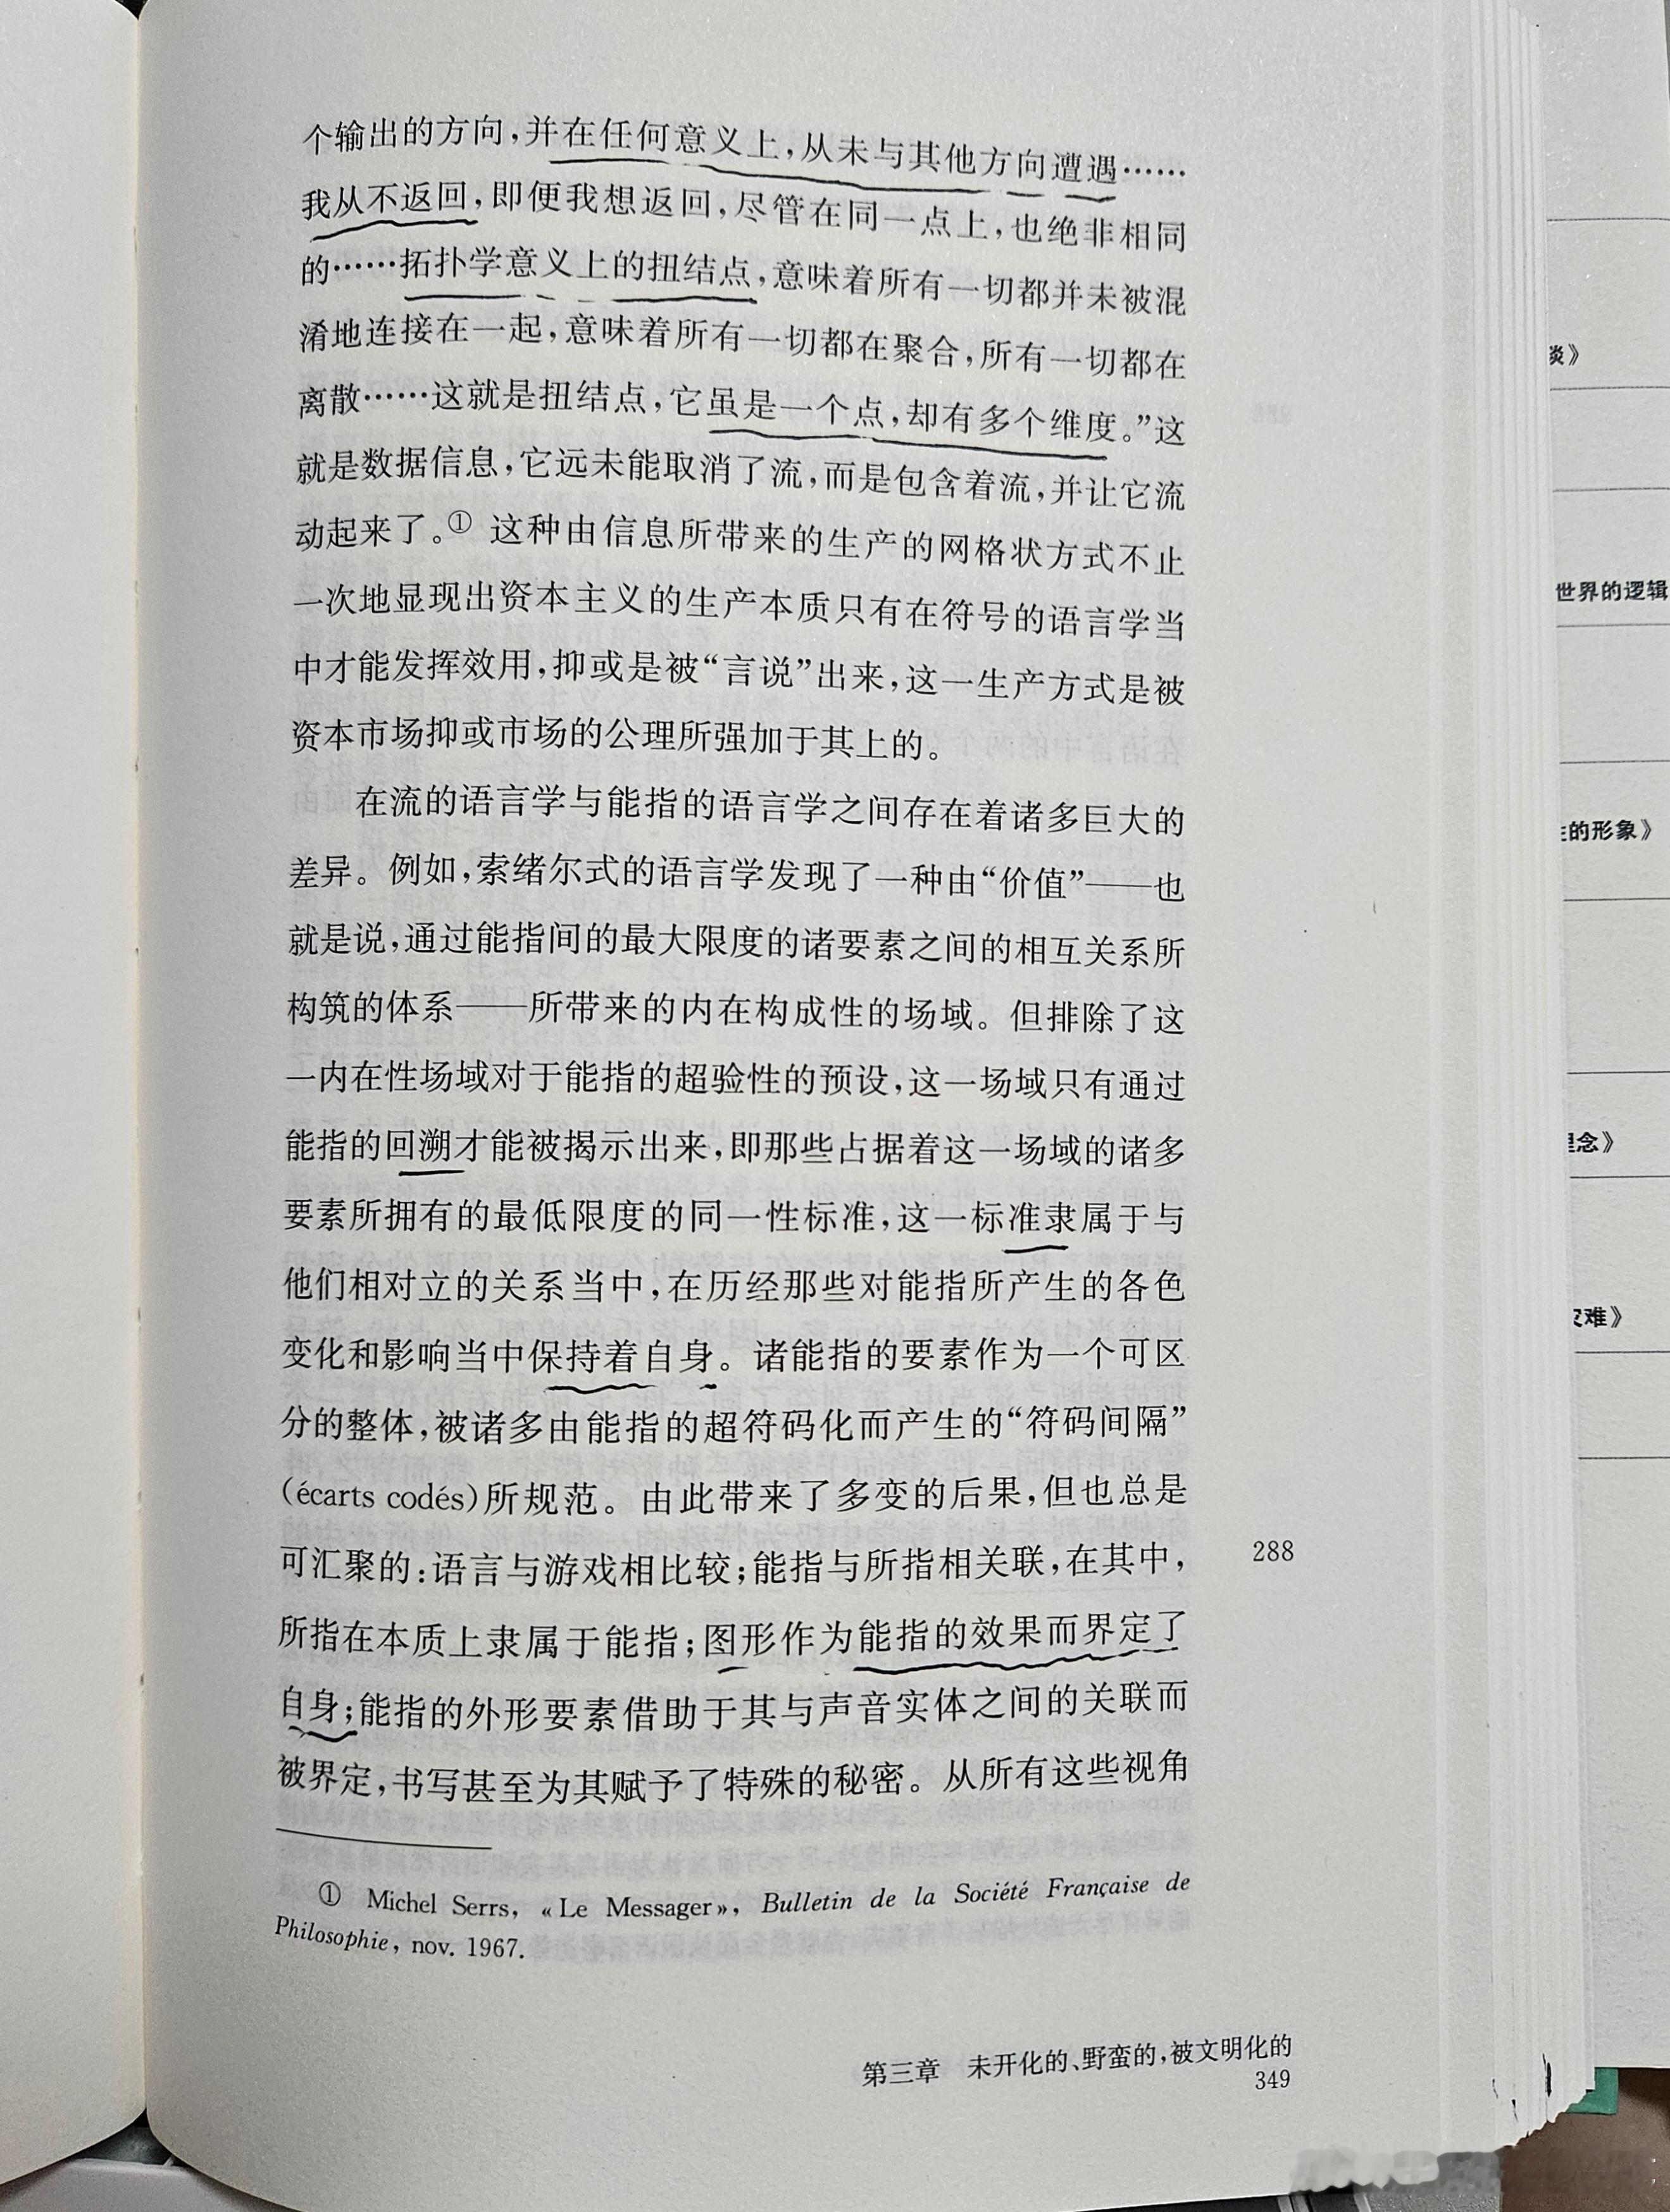 个输出的方向，并在任何意义上，从未与其他方向遭遇……
我从不返回，即便我想返回，尽管在同一点上，也绝非相同
的……拓扑学意义上的扭结点，意味着所有一切都并未被混
淆地连接在一起，意味着所有一切都在聚合，所有一切都在
离散……这就是扭结点，它虽是一个点，却有多个维度。”这
就是数据信息，它远未能取消了流，而是包含着流，并让它流
动起来了。① 这种由信息所带来的生产的网格状方式不止
一次地显现出资本主义的生产本质只有在符号的语言学当
中才能发挥效用，抑或是被“言说”出来，这一生产方式是被
资本市场抑或市场的公理所强加于其上的。
在流的语言学与能指的语言学之间存在着诸多巨大的
差异。例如，索绪尔式的语言学发现了一种由“价值”——也
就是说，通过能指间的最大限度的诸要素之间的相互关系所
构筑的体系——所带来的内在构成性的场域。但排除了这
一内在性场域对于能指的超验性的预设，这一场域只有通过
能指的回溯才能被揭示出来，即那些占据着这一场域的诸多
要素所拥有的最低限度的同一性标准，这一标准隶属于与
他们相对立的关系当中，在历经那些对能指所产生的各色
变化和影响当中保持着自身。诸能指的要素作为一个可区
分的整体，被诸多由能指的超符码化而产生的“符码间隔”
（écarts codés）所规范。由此带来了多变的后果，但也总是
可汇聚的：语言与游戏相比较；能指与所指相关联，在其中，
288
所指在本质上隶属于能指；图形作为能指的效果而界定了
自身；能指的外形要素借助于其与声音实体之间的关联而
被界定，书写甚至为其赋予了特殊的秘密。从所有这些视角
① Michel Serrs, «Le Messager», Bulletin de la Société Française de
Philosophie, nov. 1967.
第三章 未开化的、野蛮的，被文明化的
349
谈》
世界的逻辑
的形象》
理念》
灾难》